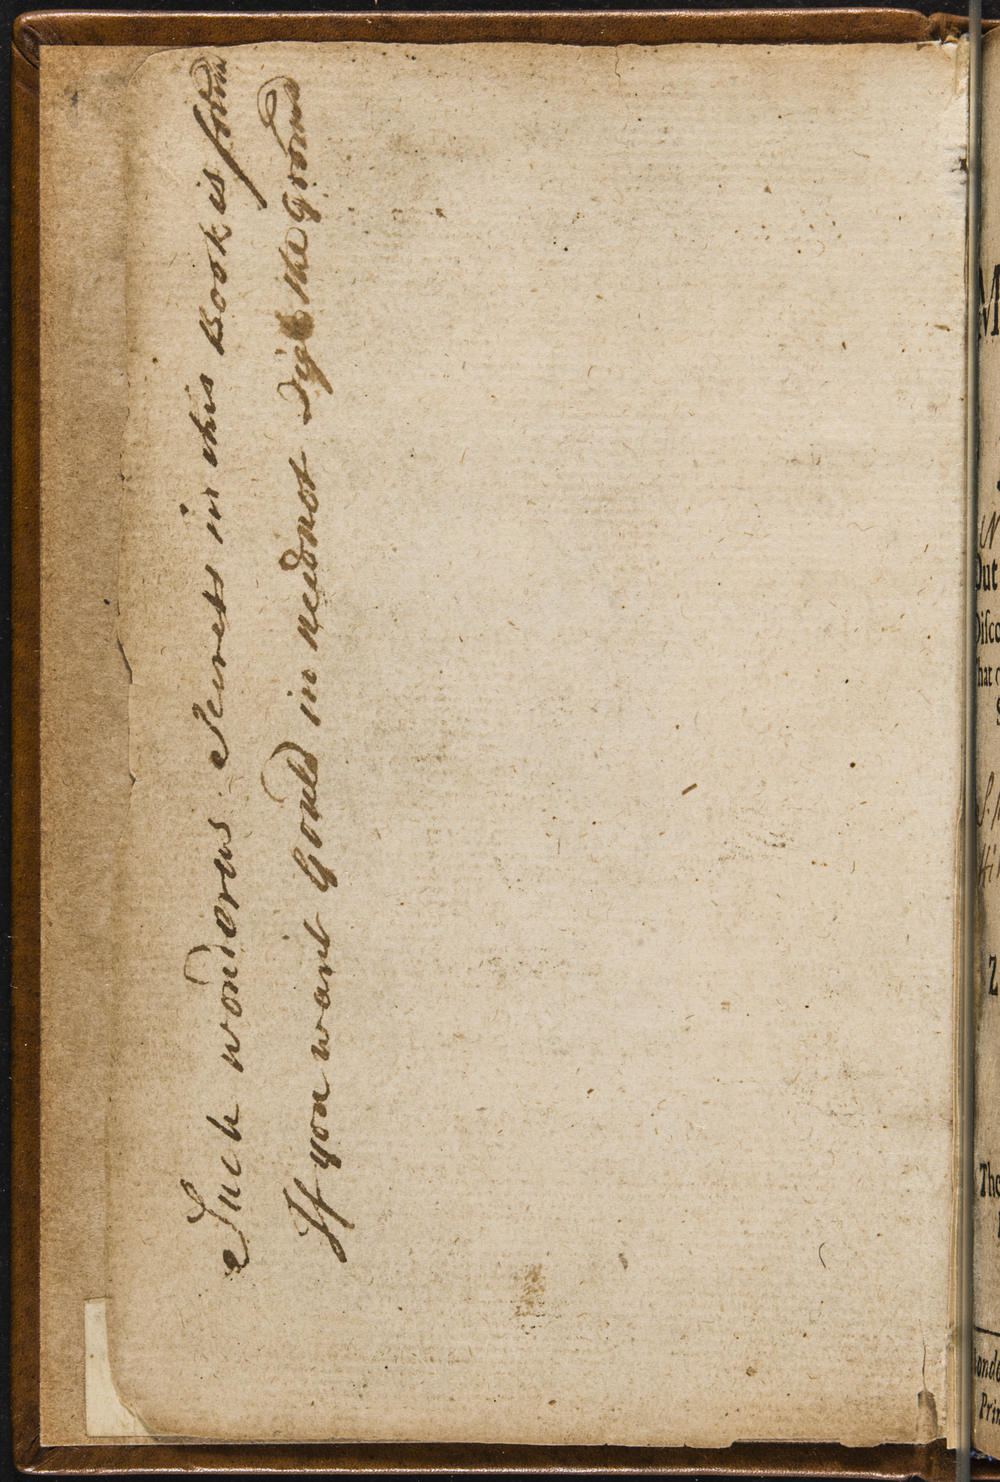 Such wondrus Secrets in this Book is found
If you want Gould in neednot Digg the Ground
M
Out
Disco
That
2
The
Londo
Prin